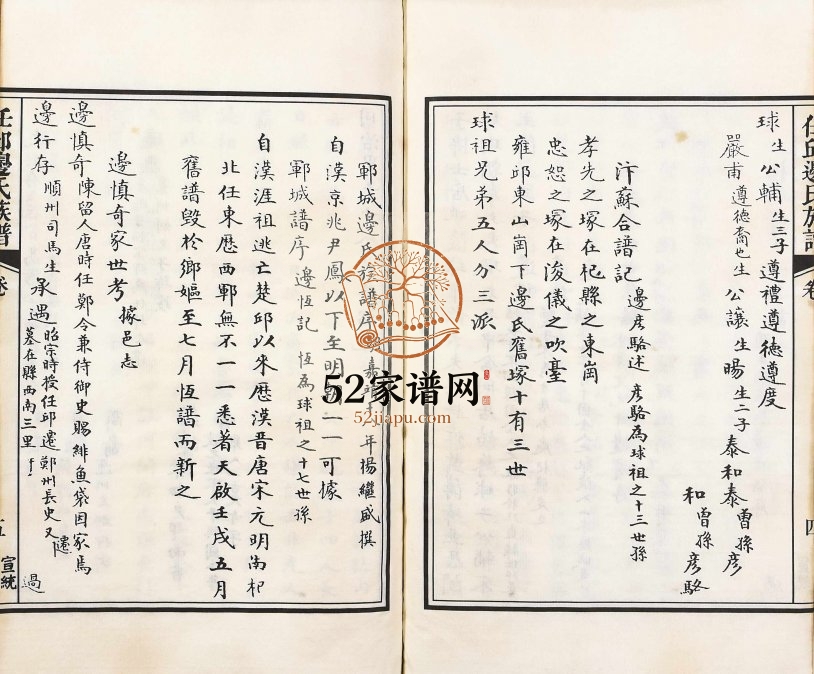 任邱邊氏族譜
卷
四
球生公輔生三子遵禮遵德遵度
嚴甫遵德裔也生公讓生暘生二子泰和泰曾孫彥
和曾孫彥駱
汴蘇合譜記邊彥駱述彥駱為球祖之十三世孫
孝先之塚在杞縣之東崗
忠恕之塚在浚儀之吹臺
雍邱東山崗下邊氏舊塚十有三世
球祖兄弟五人分三派
鄆城邊氏族譜序嘉年楊繼盛撰
自漢京兆尹鳳以下至明一一可據
鄆城譜序邊恆記恆為球祖之十七世孫
自漢涯祖逃亡楚邱以來歷漢晋唐宋元明南杞
北任東歷西鄆無不一一悉著天啟壬戌五月
舊譜毀於鄉嫗至七月恆譜而新之
邊慎奇家世考據邑志
邊慎奇陳留人唐時任鄭令兼侍御史賜緋魚袋因家焉
邊行存順州司馬生承遇昭宗時授任邱遷鄭州長史又遷
墓在縣西南三里
過
任邱邊氏族譜
卷
五
宣統
52家谱网
52jiapu.com